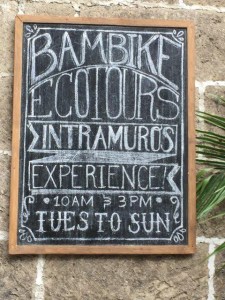 BAMBIKE
ECOTOURS
INTRAMUROS
EXPERIENCE!
• 10AM & 3PM •
TUES TO SUN